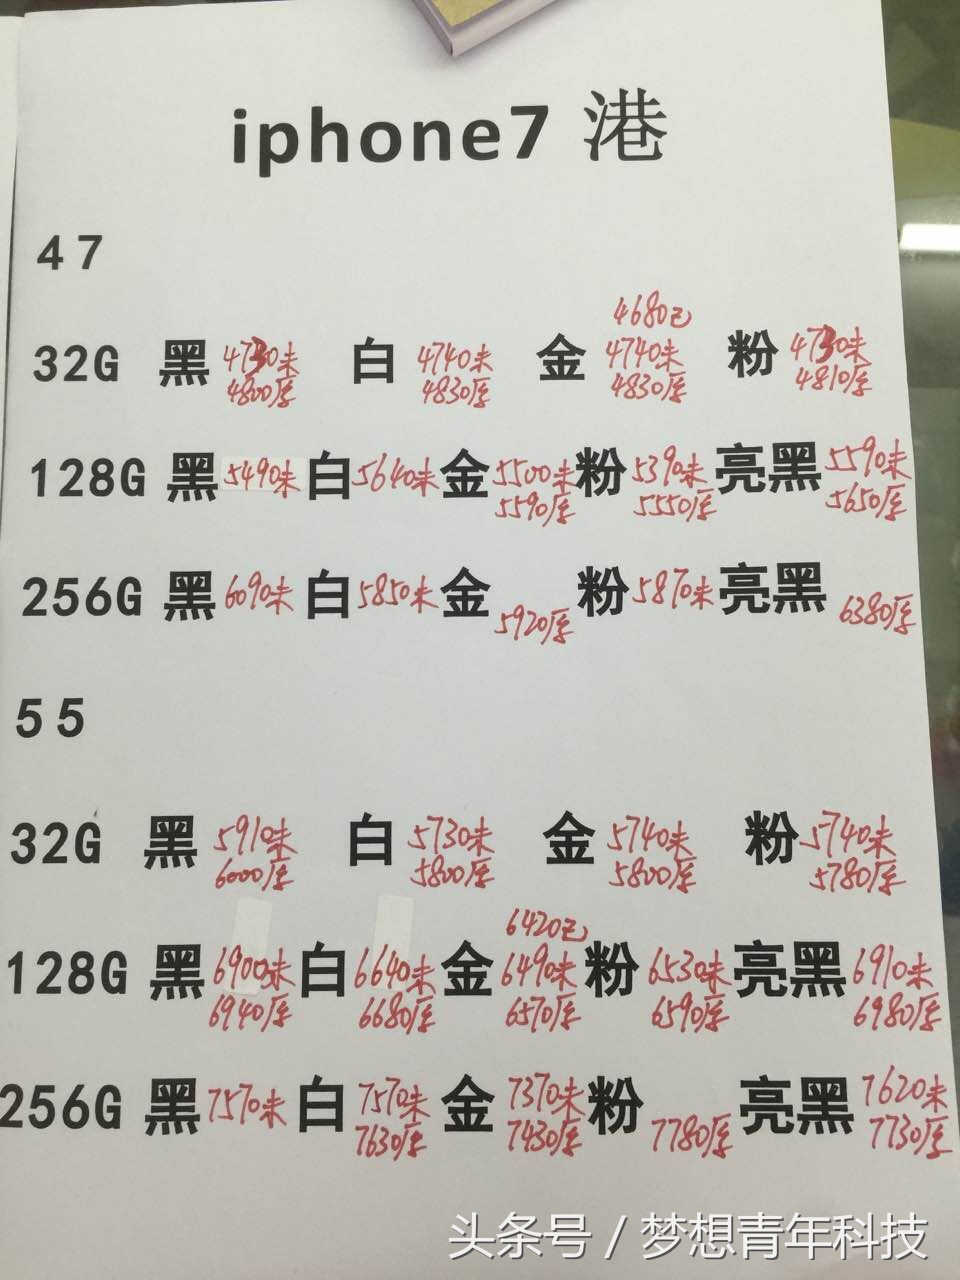 iphone7 港
47
4680已
32G 黑 4730未 白 4740未 金 4740未 粉 4730未
4800厚 4830厚 4830厚 4810厚
128G 黑 5490未 白 5640未 金 5500未 粉 5390未 亮黑 5590未
5590厚 5550厚 5650厚
256G 黑 6090未 白 5850未 金 粉 5870未 亮黑
5920厚 6380厚
55
32G 黑 5910未 白 5730未 金 5740未 粉 5740未
6000厚 5800厚 5800厚 5780厚
6420已
128G 黑 6900未 白 6640未 金 6490未 粉 6530未 亮黑 6910未
6940厚 6680厚 6570厚 6590厚 6980厚
256G 黑 7570未 白 7570未 金 7370未 粉 亮黑 7620未
7630厚 7430厚 7780厚 7730厚
头条号 / 梦想青年科技